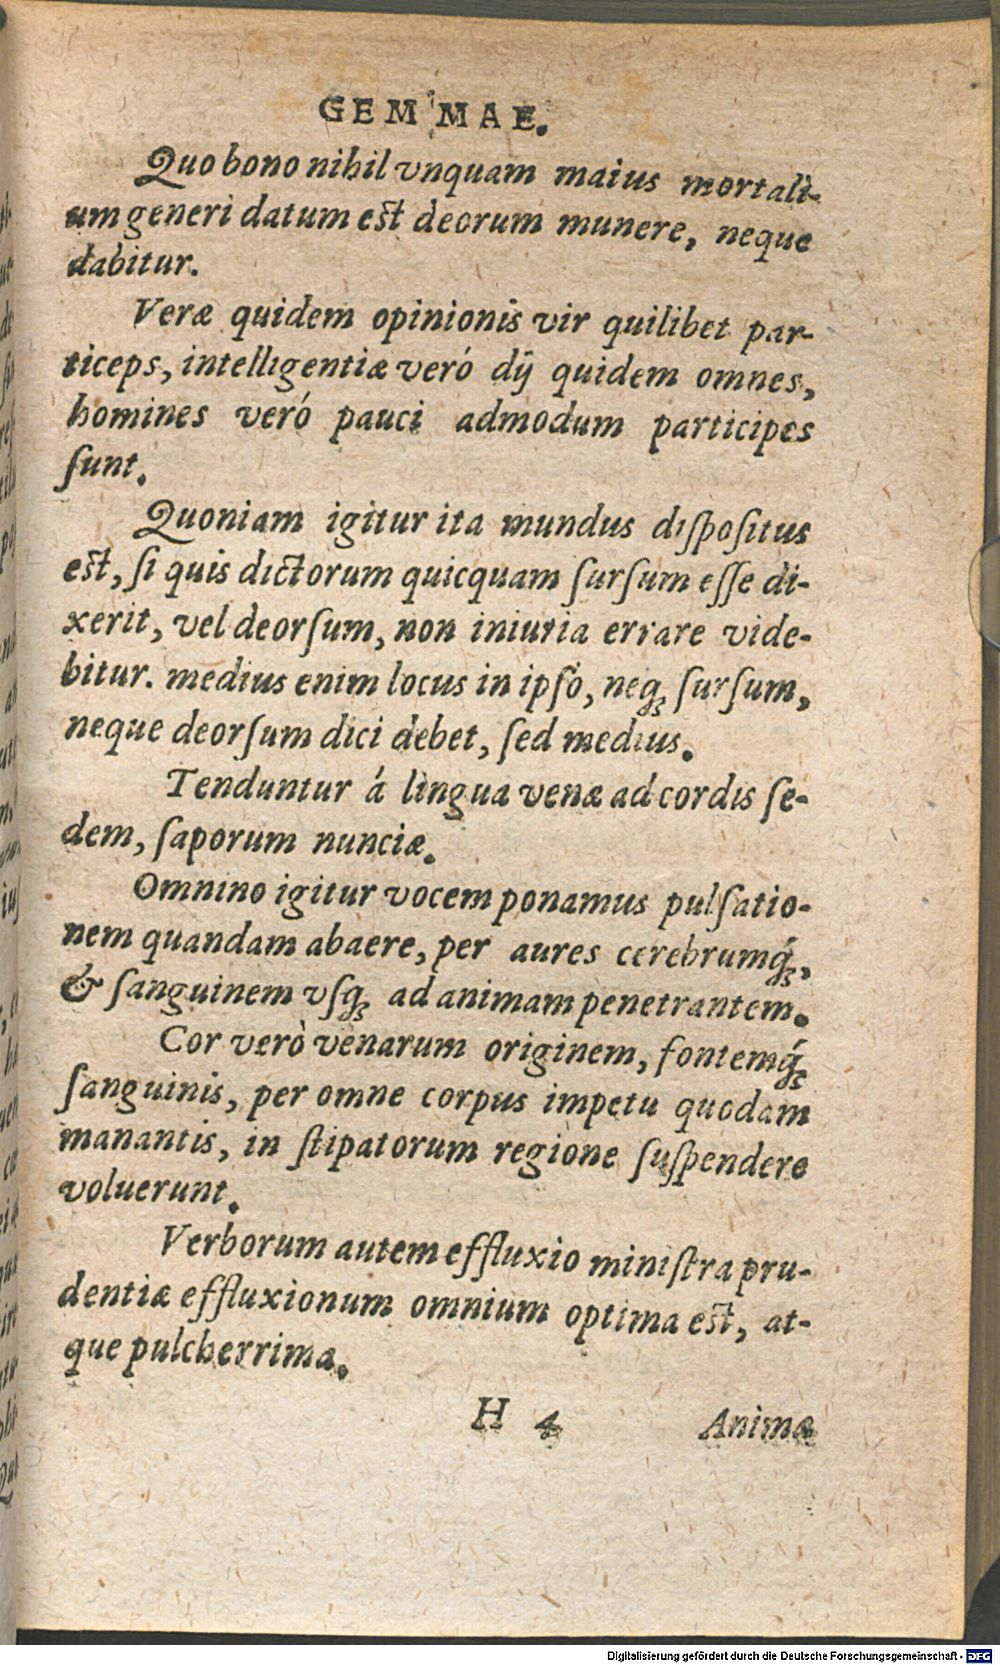 GEMMAE.
Quo bono nihil vnquam maius mortali-
um generi datum est deorum munere, neque
dabitur.
Veræ quidem opinionis vir quilibet par-
ticeps, intelligentiæ veró dij quidem omnes,
homines veró pauci admodum participes
ſunt.
Quoniam igitur ita mundus diſpoſitus
est, ſi quis dictorum quicquam ſurſum eſſe di-
xerit, vel deorſum, non iniuria errare vide-
bitur. medius enim locus in ipſo, neq; ſurſum,
neque deorſum dici debet, ſed medius.
Tenduntur á lingua venæ ad cordis ſe-
dem, ſaporum nunciæ.
Omnino igitur vocem ponamus pulſatio-
nem quandam ab aere, per aures cerebrumq́;,
& ſanguinem vſq; ad animam penetrantem.
Cor verò venarum originem, fontemq́;
ſanguinis, per omne corpus impetu quodam
manantis, in ſtipatorum regione ſuſpendere
voluerunt.
Verborum autem effluxio miniſtra pru-
dentiæ effluxionum omnium optima est, at-
que pulcherrima.
H 4 Animæ
Digitalisierung gefördert durch die Deutsche Forschungsgemeinschaft - DFG